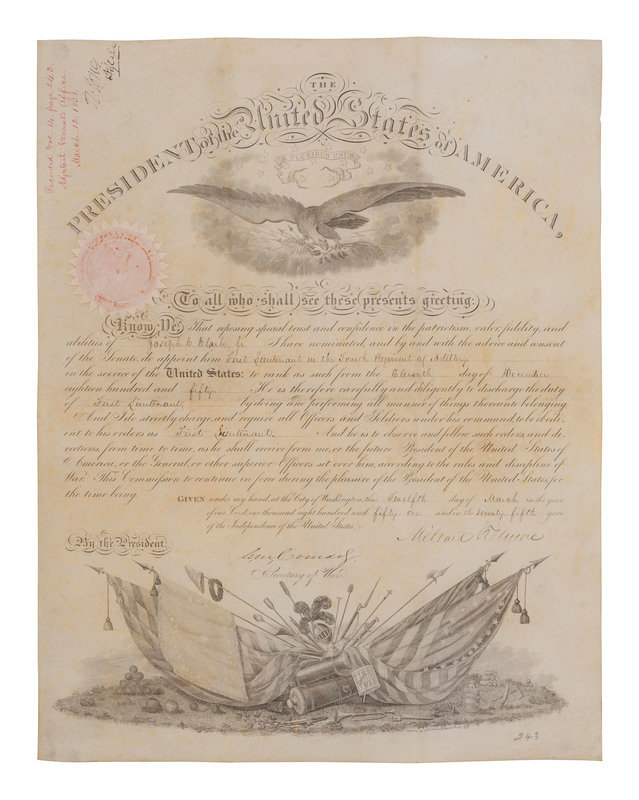 Recorded Vol. 12, page 243
Adjutant General's Office
March 12, 1851
THE
PRESIDENT of the United States of AMERICA,
E PLURIBUS UNUM
To all who shall see these presents greeting:
Know Ye, That reposing special trust and confidence in the patriotism, valor, fidelity, and
abilities of Joseph C. Clark Jr. I have nominated, and by and with the advice and consent
of the Senate, do appoint him First Lieutenant in the Fourth Regiment of Artillery
in the service of the United States: to rank as such from the Eleventh day of December
eighteen hundred and fifty. He is therefore carefully and diligently to discharge the duty
of First Lieutenant by doing and performing all manner of things thereunto belonging.
And I do strictly charge, and require all Officers and Soldiers under his command to be obedi-
ent to his orders as First Lieutenant. And he is to observe and follow such orders, and di-
rections, from time to time, as he shall receive from me, or the future President of the United States of
America, or the General, or other superior Officers set over him, according to the rules and discipline of
War. This Commission to continue in force during the pleasure of the President of the United States, for
the time being.
GIVEN under my hand, at the City of Washington, this Twelfth day of March in the year
of our Lord, one thousand eight hundred and fifty one and in the seventy fifth year
of the Independence of the United States.
Millard Fillmore
By the President
C. M. Conrad
Secretary of War.
243